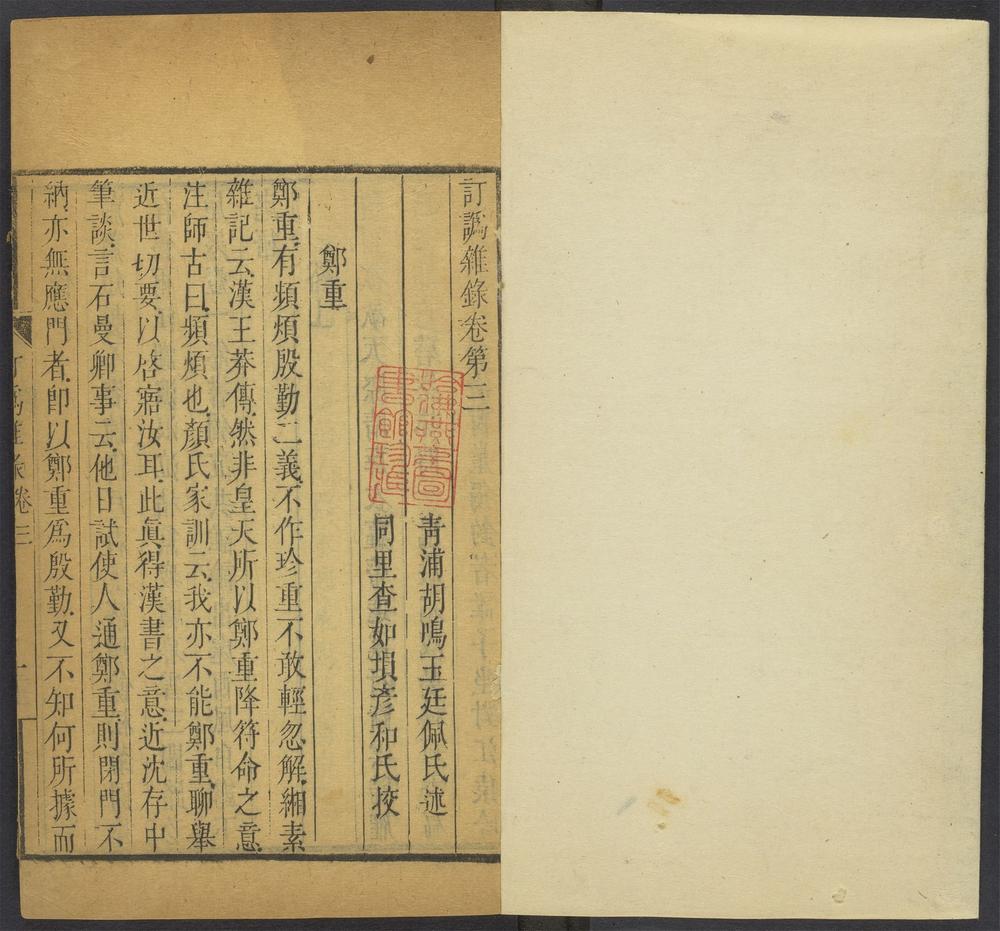 訂譌雜錄卷第三
青浦胡鳴玉廷佩氏述
同里查如塤彥和氏挍
鄭重
鄭重有頻煩殷勤二義不作珍重不敢輕忽解緗素
雜記云漢王莽傳然非皇天所以鄭重降符命之意
注師古曰頻煩也顏氏家訓云我亦不能鄭重聊舉
近世切要以啓寤汝耳此眞得漢書之意近沈存中
筆談言石曼卿事云他日試使人通鄭重則閉門不
納亦無應門者卽以鄭重爲殷勤又不知何所據而
訂譌雜录卷三
一